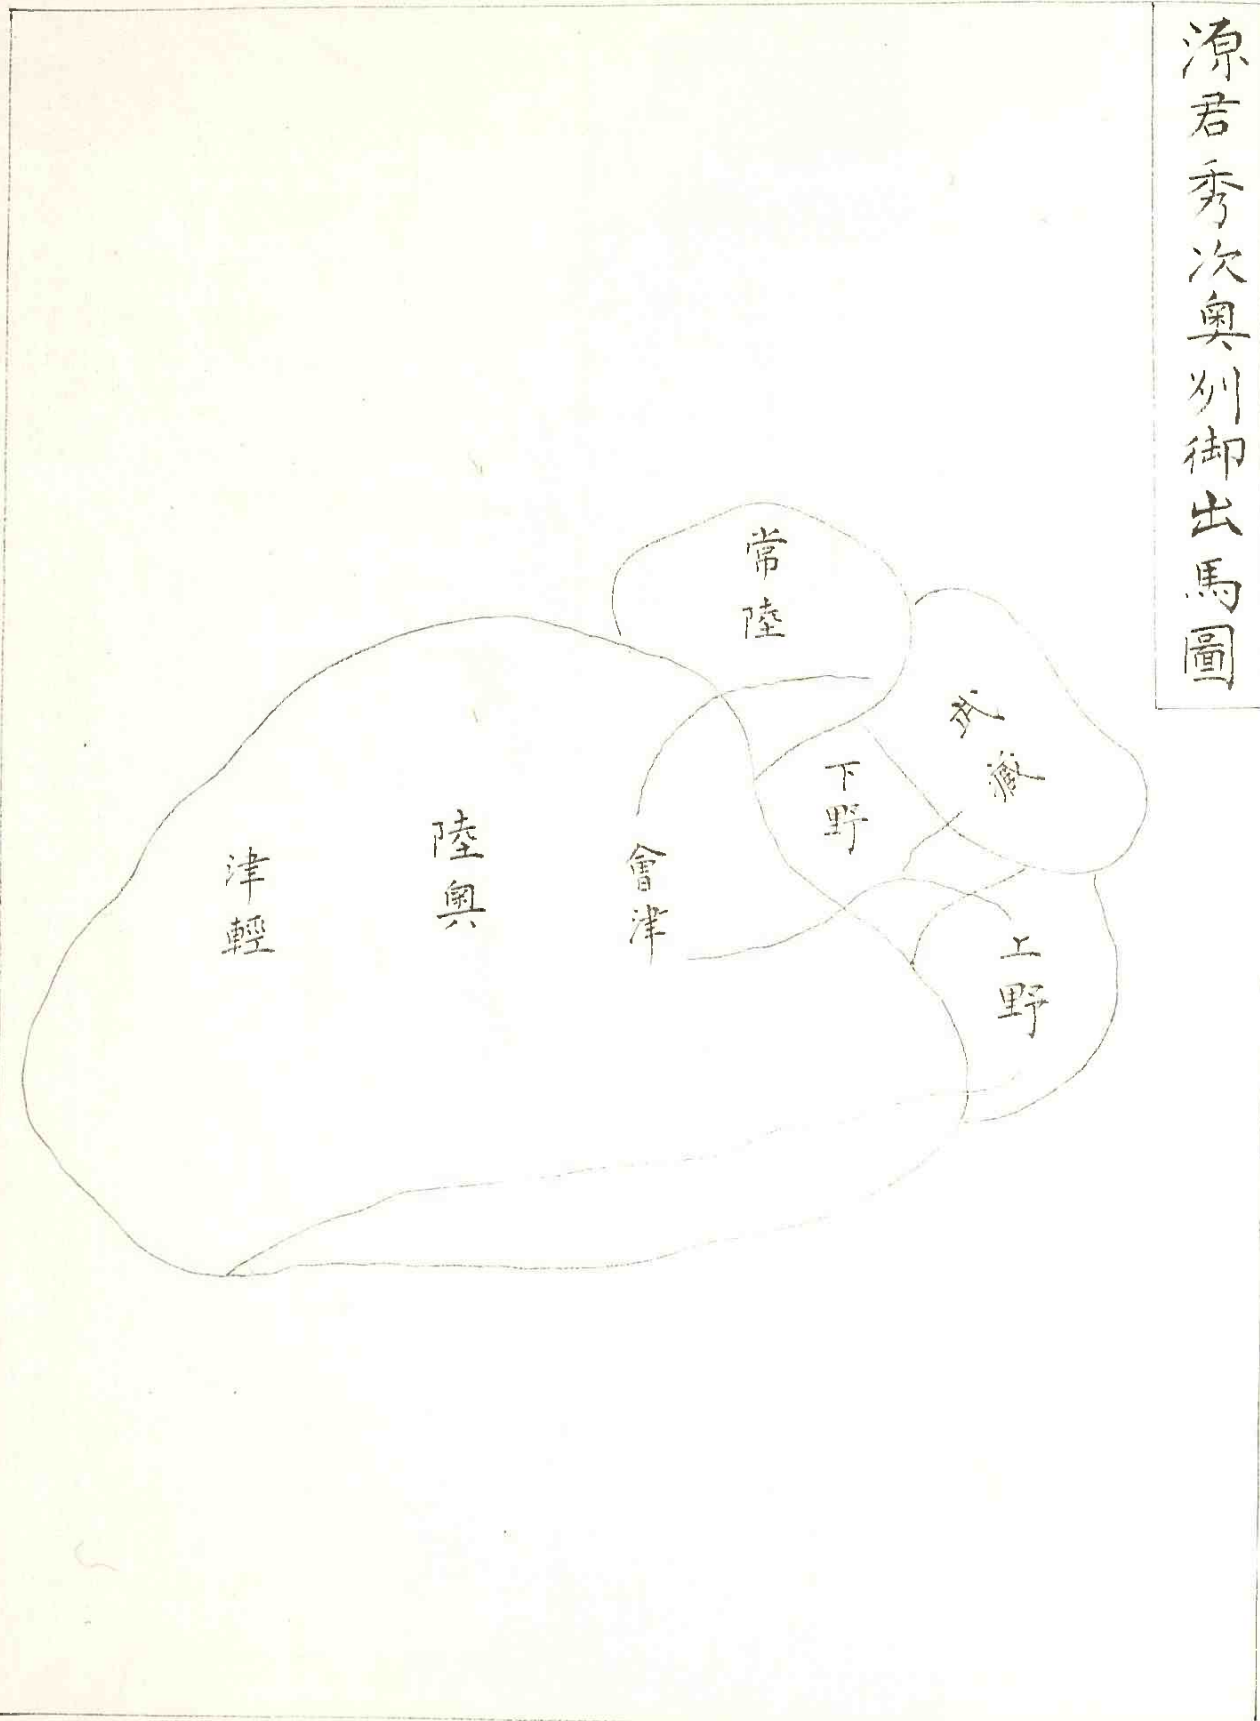 源君秀次奥州御出馬圖
常陸
武藏
下野
上野
會津
陸奥
津輕